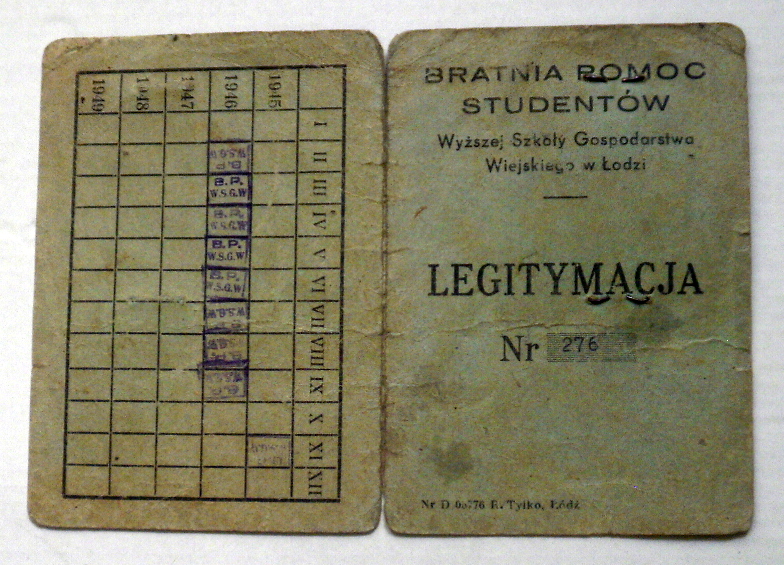 1945
1946
1947
1948
1949
I
II
III
IV
V
VI
VII
VIII
IX
X
XI
XII
B.P.
W.S.G.W
B.P.
W.S.G.W
B.P.
W.S.G.W
B.P.
W.S.G.W
B.P.
W.S.G.W
W.S.G.W
B.P.
B.P.
B.P.
BRATNIA POMOC
STUDENTÓW
Wyższej Szkoły Gospodarstwa
Wiejskiego w Łodzi
LEGITYMACJA
Nr 276
Nr D R. Tylko, Łódź